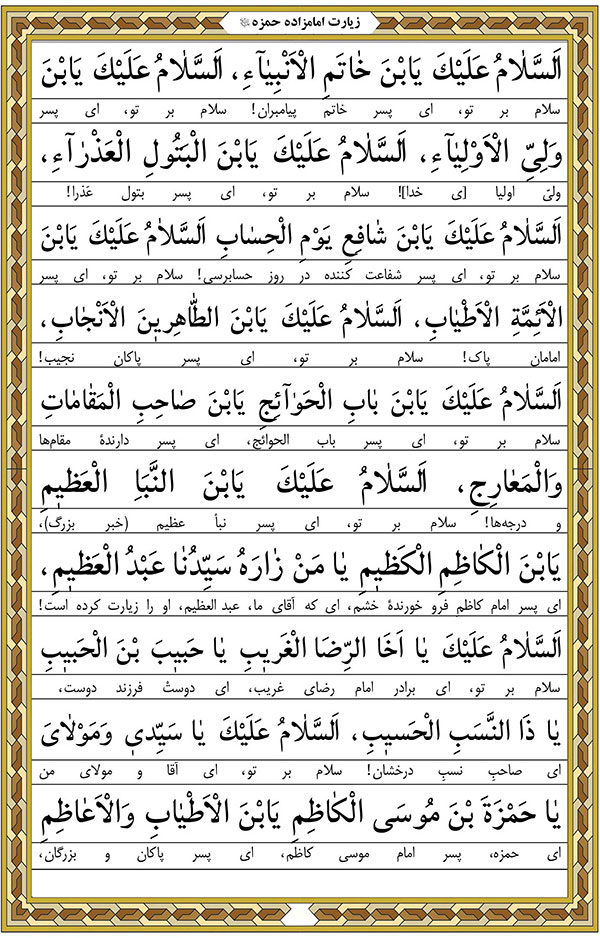 زیارت امامزاده حمزه
اَلسَّلٰامُ عَلَيْكَ يَابْنَ خٰاتَمِ الْاَنْبِيٰآءِ، اَلسَّلٰامُ عَلَيْكَ يَابْنَ
سلام بر تو، ای پسر خاتم پیامبران! سلام بر تو، ای پسر
وَلِيِّ الْاَوْلِيٰآءِ، اَلسَّلٰامُ عَلَيْكَ يَابْنَ الْبَتُولِ الْعَذْرٰآءِ،
ولیّ اولیا [ی خدا]! سلام بر تو، ای پسر بتول عَذرا!
اَلسَّلٰامُ عَلَيْكَ يَابْنَ شٰافِعِ يَوْمِ الْحِسٰابِ اَلسَّلٰامُ عَلَيْكَ يَابْنَ
سلام بر تو، ای پسر شفاعت کننده در روز حسابرسی! سلام بر تو، ای پسر
الْاَئِمَّةِ الْاَطْيٰابِ، اَلسَّلٰامُ عَلَيْكَ يَابْنَ الطّٰاهِرِينَ الْاَنْجٰابِ،
امامان پاک! سلام بر تو، ای پسر پاکان نجیب!
اَلسَّلٰامُ عَلَيْكَ يَابْنَ بٰابِ الْحَوٰآئِجِ يَابْنَ صٰاحِبِ الْمَقٰامٰاتِ
سلام بر تو، ای پسر باب الحوائج، ای پسر دارندهٔ مقام‌ها
وَالْمَعٰارِجِ، اَلسَّلٰامُ عَلَيْكَ يَابْنَ النَّبَاِ الْعَظٖيمِ
و درجه‌ها! سلام بر تو، ای پسر نبأ عظیم (خبر بزرگ)،
يَابْنَ الْكٰاظِمِ الْكَظٖيمِ يٰا مَنْ زٰارَهُ سَيِّدُنٰا عَبْدُ الْعَظٖيمِ،
ای پسر امام کاظمِ فرو خورندهٔ خشم، ای که آقای ما، عبد العظیم، او را زیارت کرده است!
اَلسَّلٰامُ عَلَيْكَ يٰا اَخَا الرِّضَا الْغَرٖيبِ يٰا حَبٖيبَ بْنَ الْحَبٖيبِ
سلام بر تو، ای برادر امام رضای غریب، ای دوستْ فرزند دوست،
يٰا ذَا النَّسَبِ الْحَسٖيبِ، اَلسَّلٰامُ عَلَيْكَ يٰا سَيِّدٖي وَمَوْلٰايَ
ای صاحبِ نسبِ درخشان! سلام بر تو، ای آقا و مولای من
يٰا حَمْزَةَ بْنَ مُوسَى الْكٰاظِمِ يَابْنَ الْاَطْيٰابِ وَالْاَعٰاظِمِ
ای حمزه، پسر امام موسی کاظم، ای پسر پاکان و بزرگان،